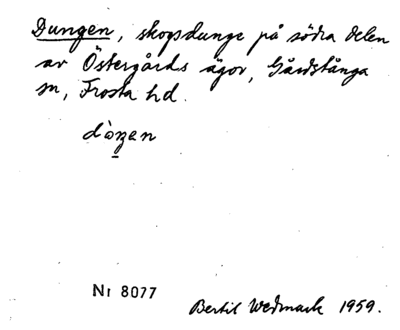 Dungen, skogsdunge på södra delen
av Östergårds ägor, Gårdstånga
sn, Frosta hd.
Nr 8077
Bertil Wedmark 1959.